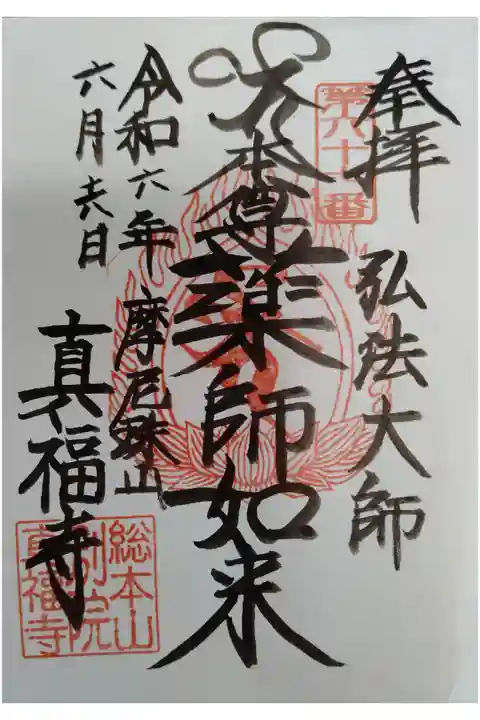 奉拝 弘法大師
第六十七番
大本尊薬師如来
令和六年
六月十六日
摩尼珠山
真福寺
総本山
別院
真福寺